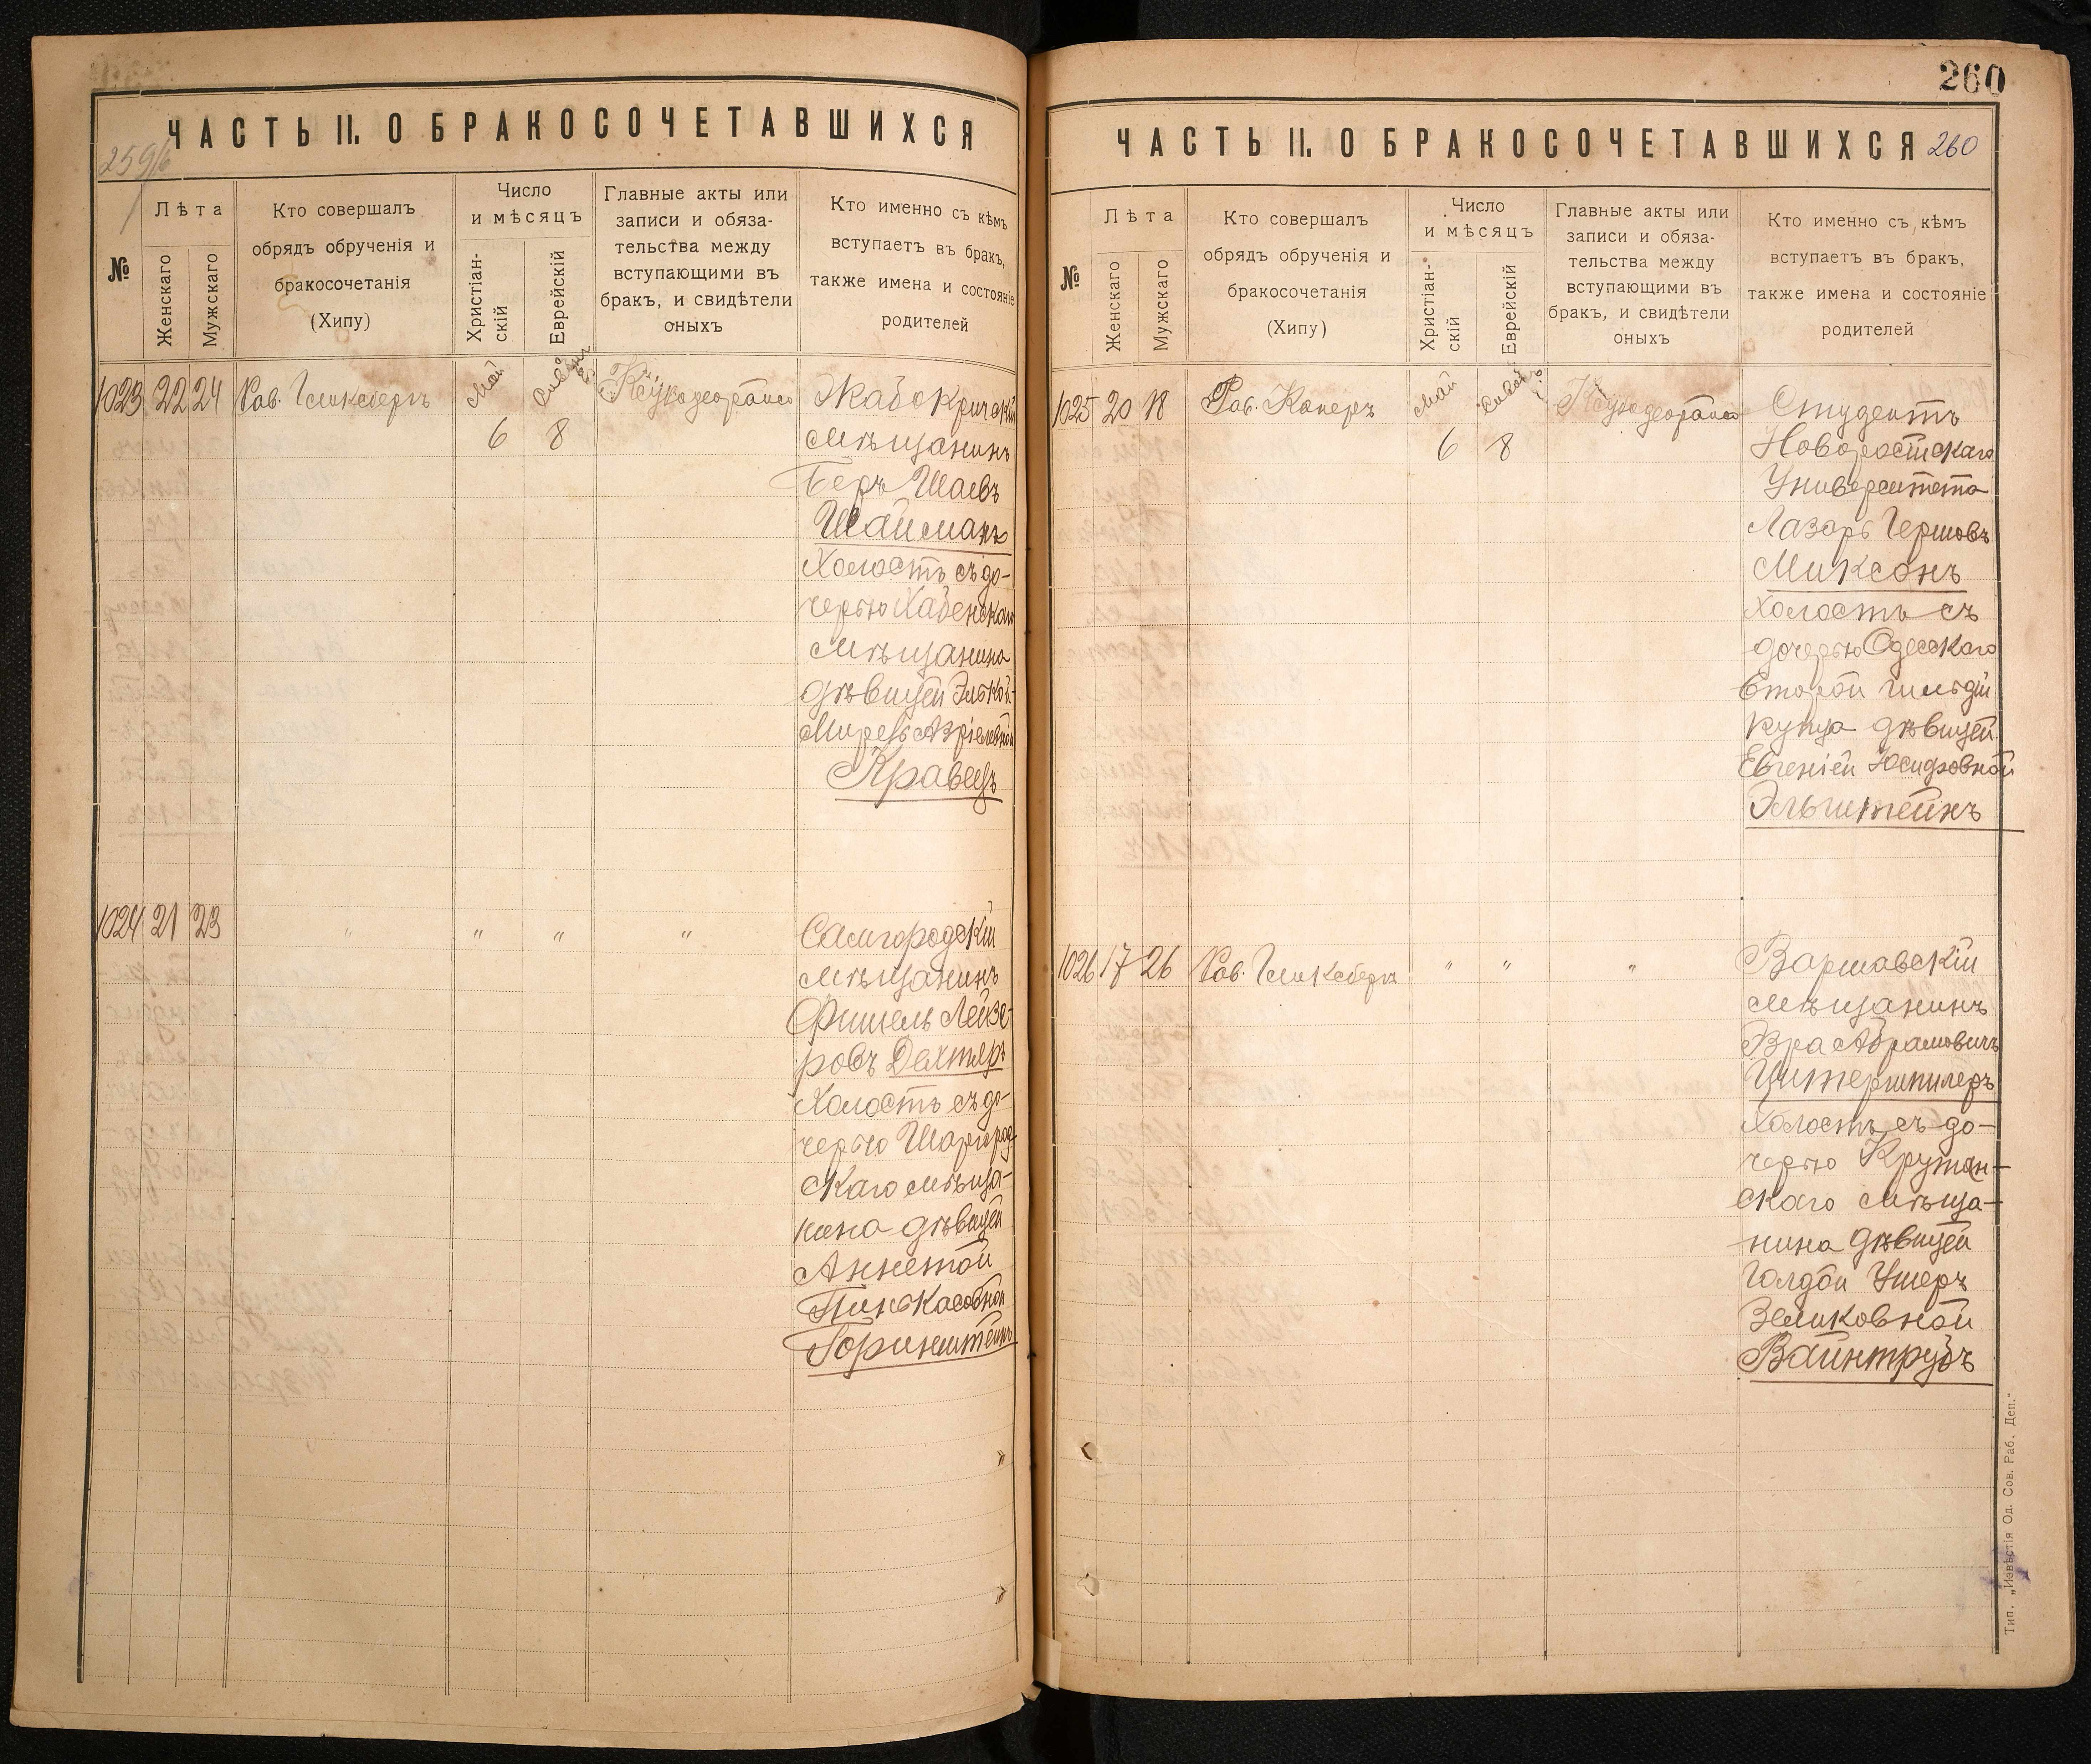 ЧАСТЬ II. О БРАКОСОЧЕТАВШИХСЯ
№
Лѣта
Женскаго
Мужскаго
Кто совершалъ
обрядъ обрученія и
бракосочетанія
(Хипу)
Число
и мѣсяцъ
Христіан-
скій
Еврейскій
Главные акты или
записи и обяза-
тельства между
вступающими въ
бракъ, и свидѣтели
оныхъ
Кто именно съ кѣмъ
вступаетъ въ бракъ,
также имена и состояніе
родителей
1023 22 24 Рав. Гликсбергъ Май
6 8
Жабокричскій
мѣщанинъ
Беръ Шаевъ
Шайманъ
холостъ съ до-
черью Хабенскаго
мѣщанина
дѣвицей Элькой-
Мирель Азріелевной
Кравецъ
1024 21 23 " " " "
Самгородскій
мѣщанинъ
Фишель Лейзе-
ровъ Дехтяръ
холостъ съ до-
черью Шаргород-
скаго мѣща-
нина дѣвицей
Аннетой
Пинькасовной
Горинштейнъ
260
ЧАСТЬ II. О БРАКОСОЧЕТАВШИХСЯ 260
№
Лѣта
Женскаго
Мужскаго
Кто совершалъ
обрядъ обрученія и
бракосочетанія
(Хипу)
Число
и мѣсяцъ
Христіан-
скій
Еврейскій
Главные акты или
записи и обяза-
тельства между
вступающими въ
бракъ, и свидѣтели
оныхъ
Кто именно съ кѣмъ
вступаетъ въ бракъ,
также имена и состояніе
родителей
1025 20 18 Рав. Каперъ Май
6 8
Студентъ
Новоростскаго
Университета
Лазарь Гершовъ
Миксонъ
холостъ съ
дочерью Одесскаго
второй гильдіи
купца дѣвицей
Евгеніей Юсифовной
Эльштейнъ
1026 17 26 Рав. Гликсбергъ " " "
Варшавскій
мѣщанинъ
Эзра Абрамовичъ
Цитершпилеръ
холостъ съ до-
черью Крутян-
скаго мѣща-
нина дѣвицей
Голдой Ушеръ
Зеликовной
Вайнтрубъ
Тип. „Извѣстія Од. Сов. Раб. Деп.“